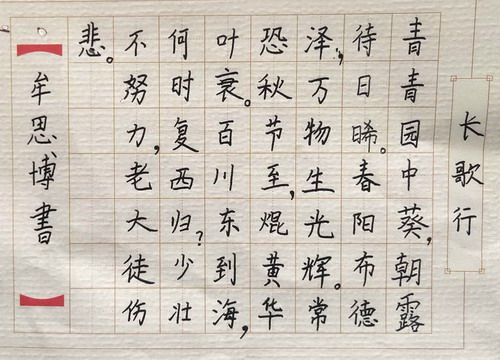 长歌行
青青园中葵，朝露
待日晞。春阳布德
泽，万物生光辉。常
恐秋节至，焜黄华
叶衰。百川东到海，
何时复西归？少壮
不努力，老大徒伤
悲。
【牟思博書】